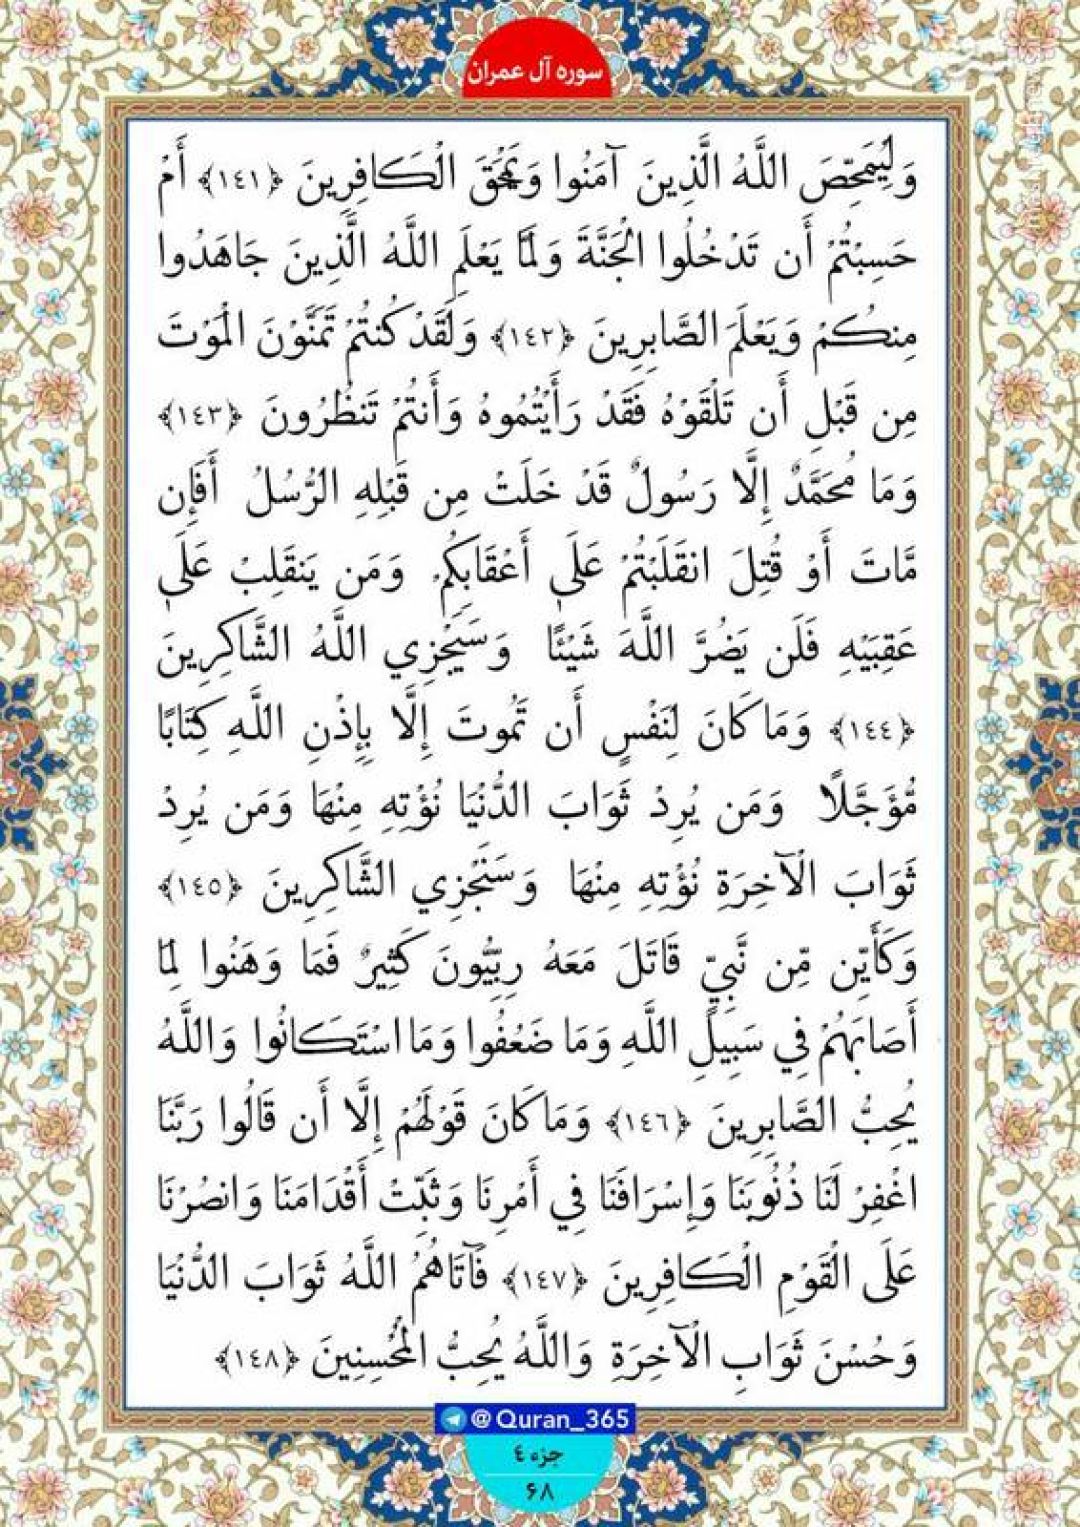 سوره آل عمران
وَلِيُمَحِّصَ اللَّهُ الَّذِينَ آمَنُوا وَيَمْحَقَ الْكَافِرِينَ ﴿١٤١﴾ أَمْ
حَسِبْتُمْ أَن تَدْخُلُوا الْجَنَّةَ وَلَمَّا يَعْلَمِ اللَّهُ الَّذِينَ جَاهَدُوا
مِنكُمْ وَيَعْلَمَ الصَّابِرِينَ ﴿١٤٢﴾ وَلَقَدْ كُنتُمْ تَمَنَّوْنَ الْمَوْتَ
مِن قَبْلِ أَن تَلْقَوْهُ فَقَدْ رَأَيْتُمُوهُ وَأَنتُمْ تَنظُرُونَ ﴿١٤٣﴾
وَمَا مُحَمَّدٌ إِلَّا رَسُولٌ قَدْ خَلَتْ مِن قَبْلِهِ الرُّسُلُ أَفَإِن
مَّاتَ أَوْ قُتِلَ انقَلَبْتُمْ عَلَىٰ أَعْقَابِكُمْ وَمَن يَنقَلِبْ عَلَىٰ
عَقِبَيْهِ فَلَن يَضُرَّ اللَّهَ شَيْئًا وَسَيَجْزِي اللَّهُ الشَّاكِرِينَ
﴿١٤٤﴾ وَمَا كَانَ لِنَفْسٍ أَن تَمُوتَ إِلَّا بِإِذْنِ اللَّهِ كِتَابًا
مُّؤَجَّلًا وَمَن يُرِدْ ثَوَابَ الدُّنْيَا نُؤْتِهِ مِنْهَا وَمَن يُرِدْ
ثَوَابَ الْآخِرَةِ نُؤْتِهِ مِنْهَا وَسَنَجْزِي الشَّاكِرِينَ ﴿١٤٥﴾
وَكَأَيِّن مِّن نَّبِيٍّ قَاتَلَ مَعَهُ رِبِّيُّونَ كَثِيرٌ فَمَا وَهَنُوا لِمَا
أَصَابَهُمْ فِي سَبِيلِ اللَّهِ وَمَا ضَعُفُوا وَمَا اسْتَكَانُوا وَاللَّهُ
يُحِبُّ الصَّابِرِينَ ﴿١٤٦﴾ وَمَا كَانَ قَوْلَهُمْ إِلَّا أَن قَالُوا رَبَّنَا
اغْفِرْ لَنَا ذُنُوبَنَا وَإِسْرَافَنَا فِي أَمْرِنَا وَثَبِّتْ أَقْدَامَنَا وَانصُرْنَا
عَلَى الْقَوْمِ الْكَافِرِينَ ﴿١٤٧﴾ فَآتَاهُمُ اللَّهُ ثَوَابَ الدُّنْيَا
وَحُسْنَ ثَوَابِ الْآخِرَةِ وَاللَّهُ يُحِبُّ الْمُحْسِنِينَ ﴿١٤٨﴾
@Quran_365
جزء ٤
۶۸